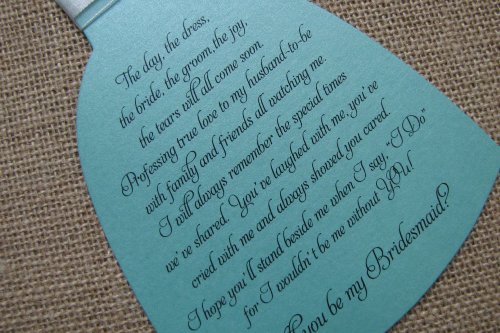 The day, the dress,
the bride, the groom, the joy,
the tears will all come soon.
Professing true love to my husband-to-be
with family and friends all watching me.
I will always remember the special times
we've shared. You've laughed with me, you've
cried with me and always showed you cared.
I hope you'll stand beside me when I say, "I Do"
for I wouldn't be me without YOU!
you be my Bridesmaid?